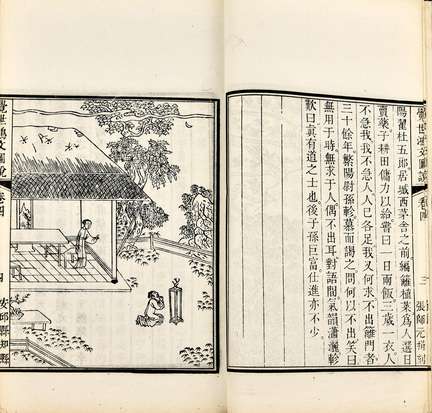 陽翟杜五郎居城西茅舍之前編籬植菜爲人選日
賣藥子耕田傭力以給嘗曰一日兩飯三歲一衣人
不急我我不急人人已各足我又何求不出籬門者
三十餘年縣陽尉孫軫慕而謁之問何以不出笑曰
無用于時無求于人偶不出耳對語間氣韻瀟灑軫
歎曰真有道之士也後子孫巨富仕進亦不少
覺世鴻文圖說
卷四
三
張師元
覺世鴻文圖說
卷四
四
安邱縣知縣